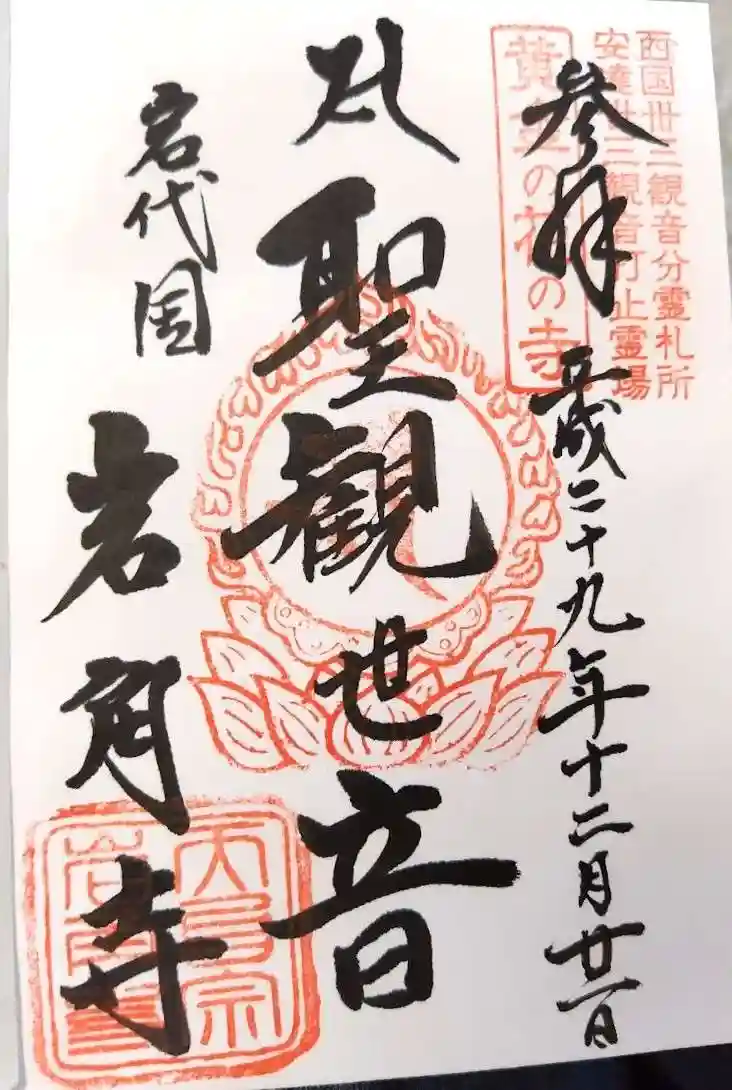 西国卅三観音分霊札所
安達卅三観音打止霊場
黄金の花の寺
参拝 平成二十九年十二月廿一日
聖観世音
岩代国
岩角寺
天台宗